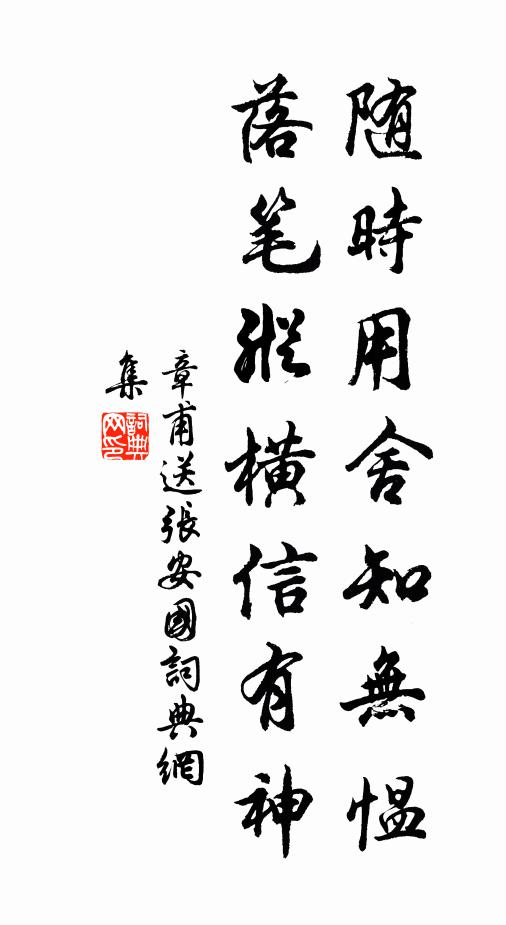 随時用舍知無愠
落笔縱横信有神
章甫送張安國詞典網
集
詞典网印